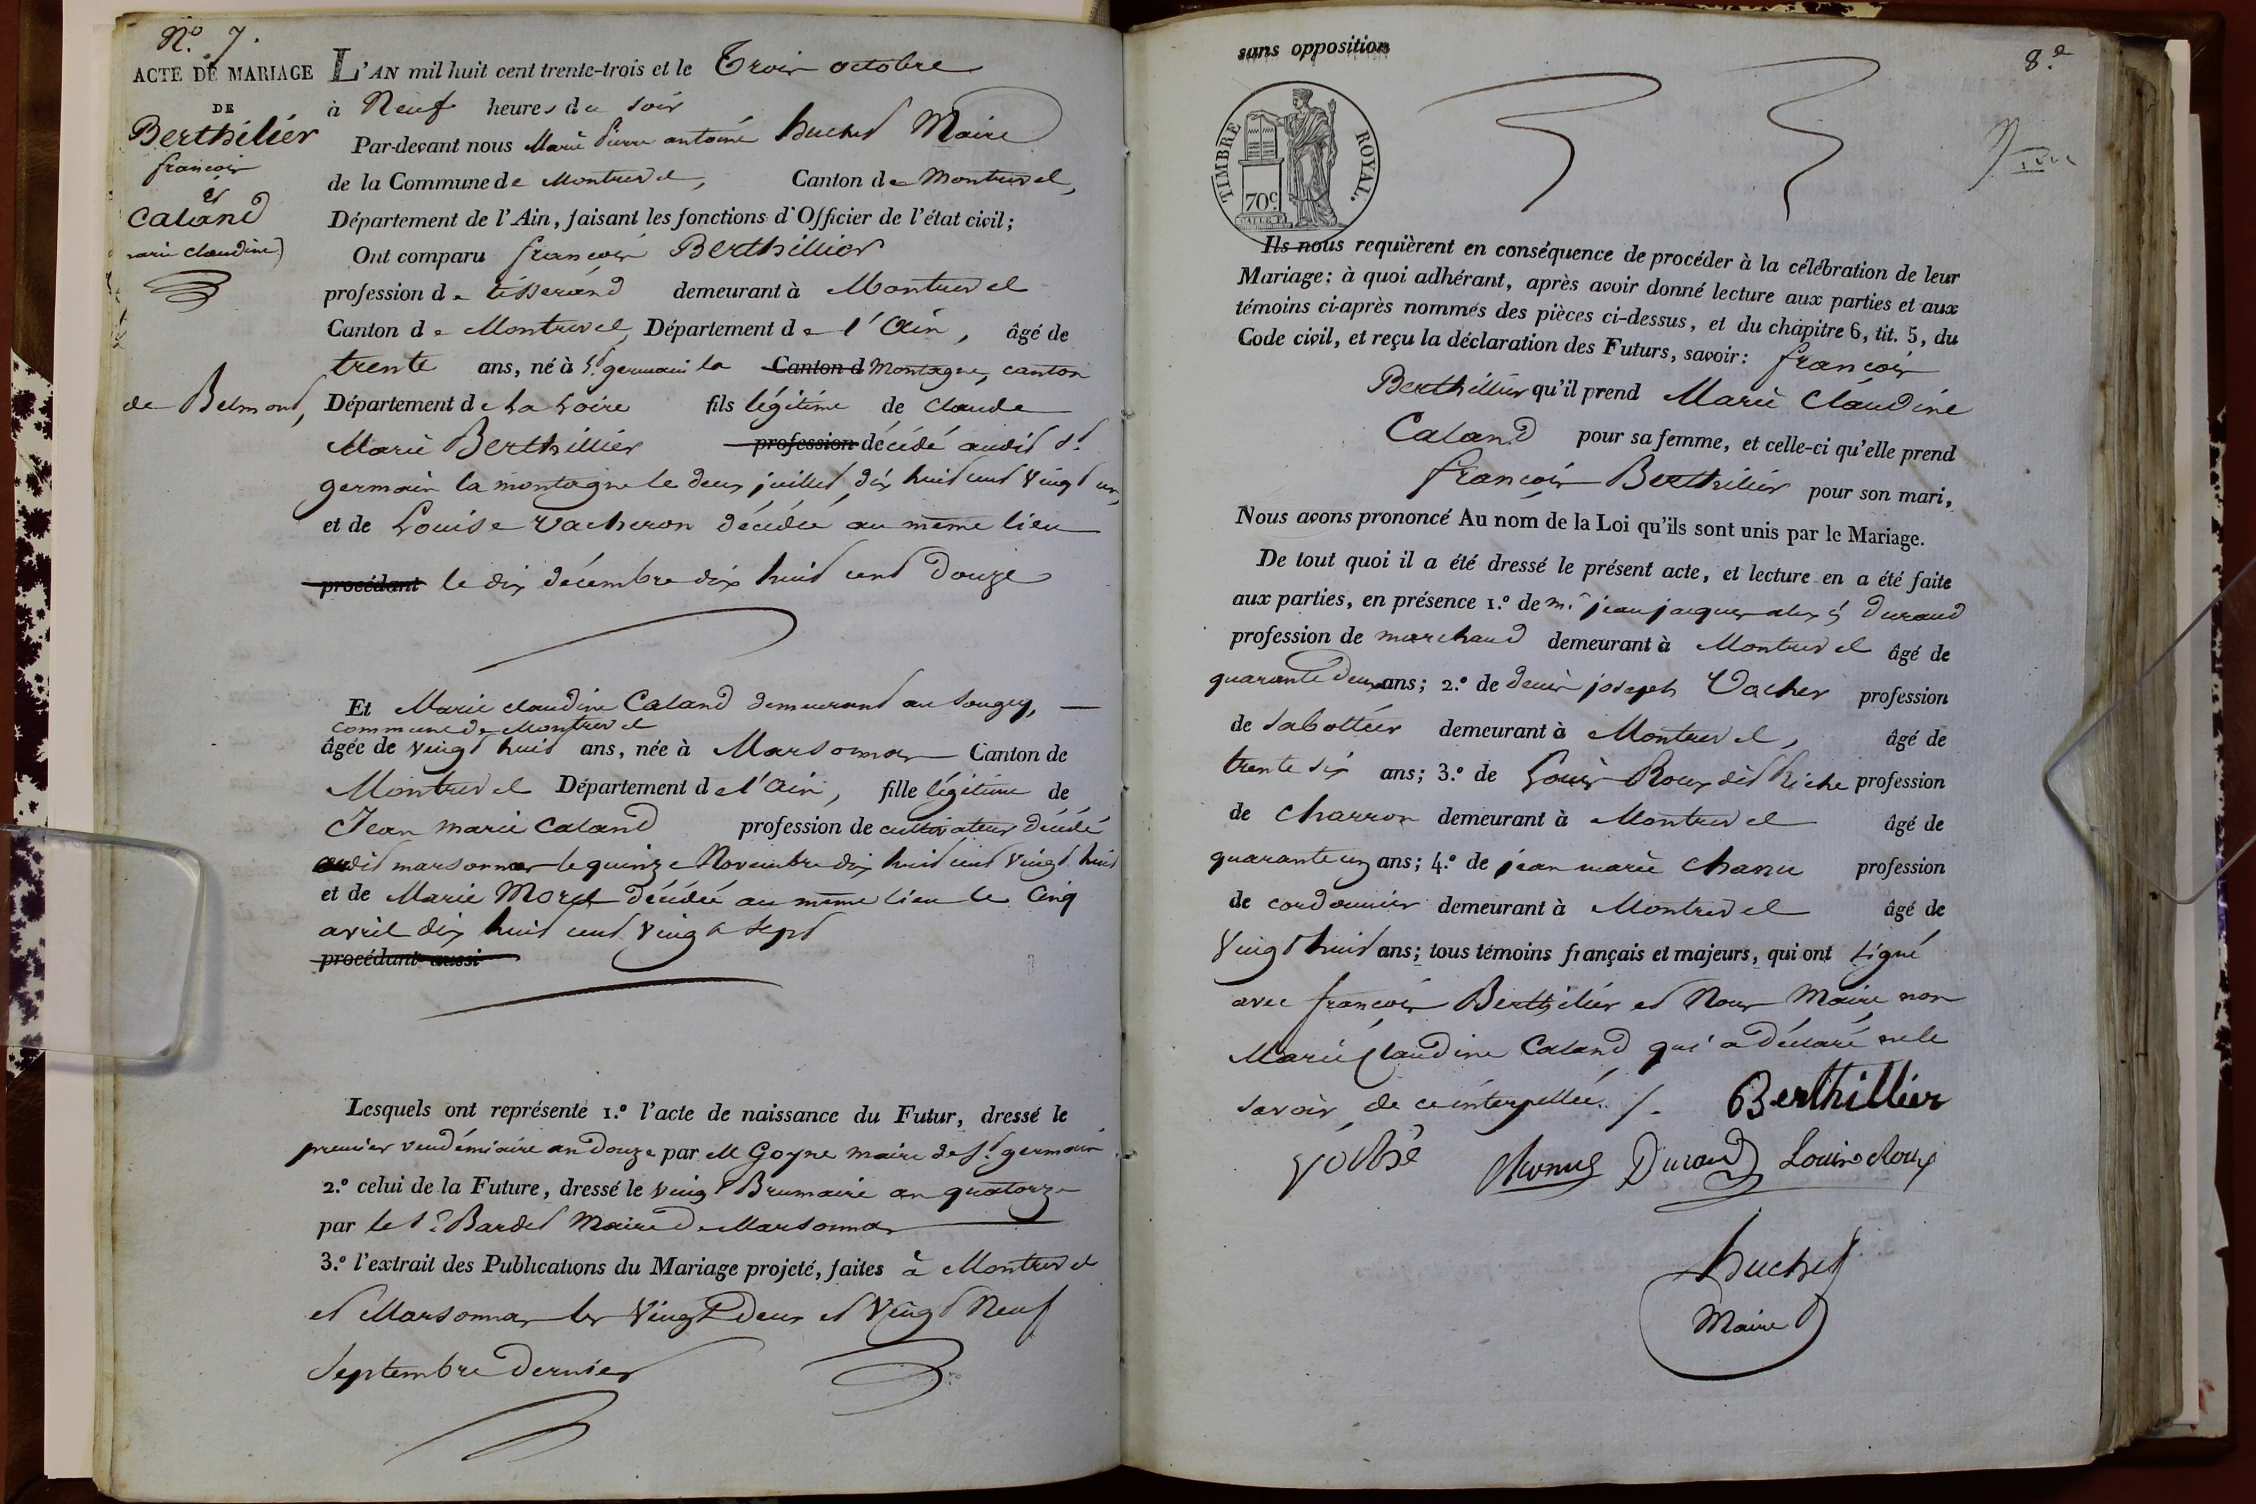 N.º 7.
ACTE DE MARIAGE
DE
Berthéliér
françois
et
Caland
marie claudine)
L'AN mil huit cent trente-trois et le Trois octobre
à Neuf heures du soir
Par-devant nous Marie Pierre antoine huchet Maire
de la Commune de Montrevel, Canton de Montrevel,
Département de l'Ain, faisant les fonctions d'Officier de l'état civil;
Ont comparu françois Berthillier
profession de tisserand demeurant à Montrevel
Canton de Montrevel, Département de l'Ain, âgé de
trente ans, né à St. germain la Canton d Montagne, canton
de Belmont, Département de La Loire fils légitime de claude
Marie Berthillier profession décédé audit St.
germain la montagne le deux juillet dix huit cent vingt un,
et de Louise vacheron décédée au même lieu
procédant le dix décembre dix huit cent douze
Et Marie claudine Caland demeurant au Sougey,
commune de Montrevel
âgée de vingt huit ans, née à Marsonnas Canton de
Montrevel Département de l'Ain, fille légitime de
Jean marie Caland profession de cultivateur décédé
audit marsonnas le quinze Novembre dix huit cent vingt huit
et de Marie Morel décédée au même lieu le Cinq
avril dix huit cent vingt sept
procédant aussi
Lesquels ont représenté 1.º l'acte de naissance du Futur, dressé le
premier vendémiaire an douze par M Goyne maire de St. germain
2.º celui de la Future, dressé le vingt Brumaire an quatorze
par le Sr. Bardet Maire de Marsonnas
3.º l'extrait des Publications du Mariage projeté, faites à Montrevel
et Marsonnas les Vingt Deux et Vingt Neuf
Septembre Dernier
8.e
sans opposition
TIMBRE ROYAL.
70c.
Ils nous requièrent en conséquence de procéder à la célébration de leur
Mariage: à quoi adhérant, après avoir donné lecture aux parties et aux
témoins ci-après nommés des pièces ci-dessus, et du chapitre 6, tit. 5, du
Code civil, et reçu la déclaration des Futurs, savoir: françois
Berthillier qu'il prend Marie Claudine
Caland pour sa femme, et celle-ci qu'elle prend
françois Berthilier pour son mari,
Nous avons prononcé Au nom de la Loi qu'ils sont unis par le Mariage.
De tout quoi il a été dressé le présent acte, et lecture en a été faite
aux parties, en présence 1.º de m.r jean jacques alexis Durand
profession de marchand demeurant à Montrevel âgé de
quarante deux ans; 2.º de denis joseph Vacher profession
de sabottier demeurant à Montrevel, âgé de
trente six ans; 3.º de Louis Roux dit Riche profession
de charron demeurant à Montrevel âgé de
quarante un ans; 4.º de jean marie Chanu profession
de cordonnier demeurant à Montrevel âgé de
Vingt huit ans; tous témoins français et majeurs, qui ont signé
avec françois Berthilier et Nous Maire, non
Marie Claudine Caland qui a déclaré ne le
savoir de ce interpellée. /.
Berthillier
Durand Louis Roux
huchet
Maire